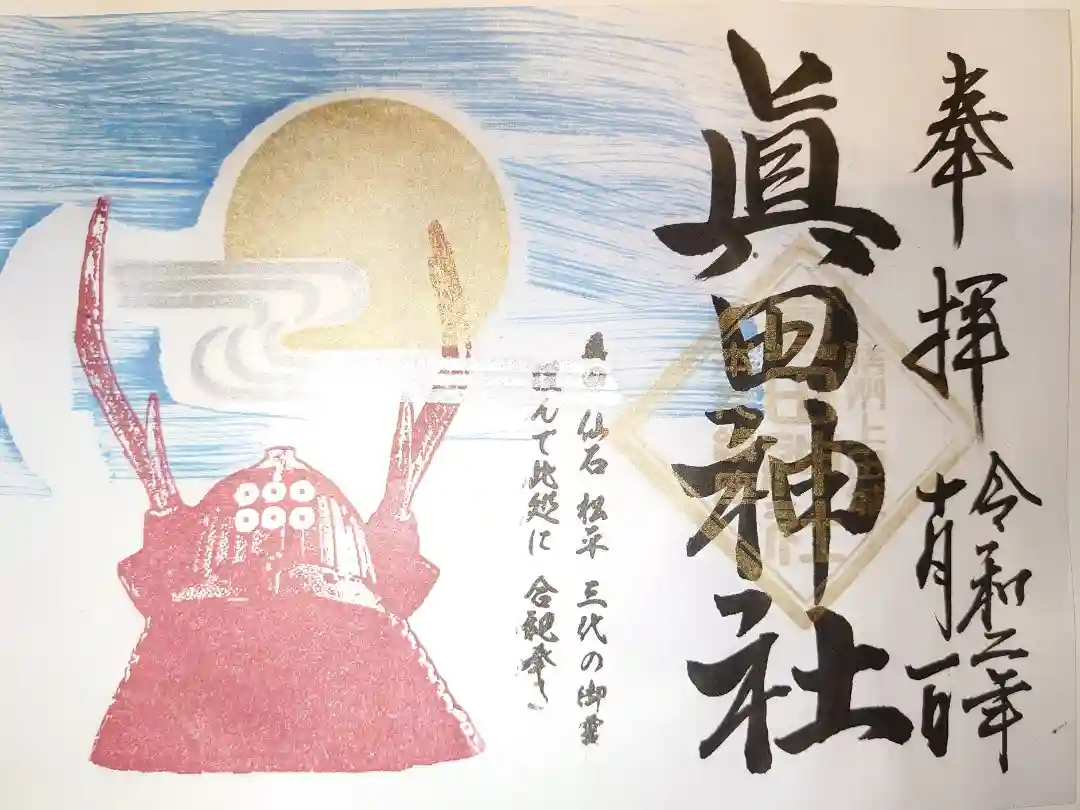 奉拝
令和二年
十月一日
眞田神社
信州上田城
真田 仙石 松平 三代の御霊
謹んで此処に 合祀奉る